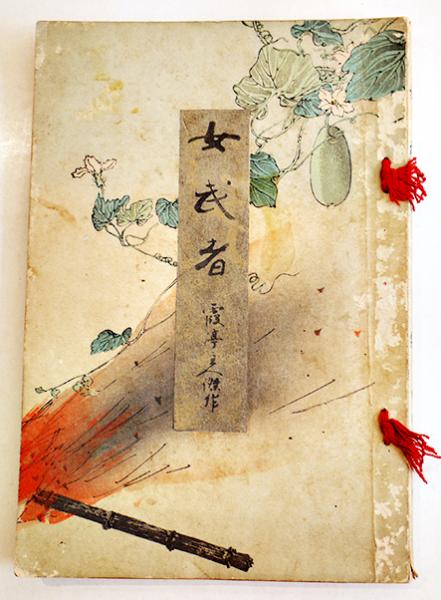 女武者
霞亭主人傑作